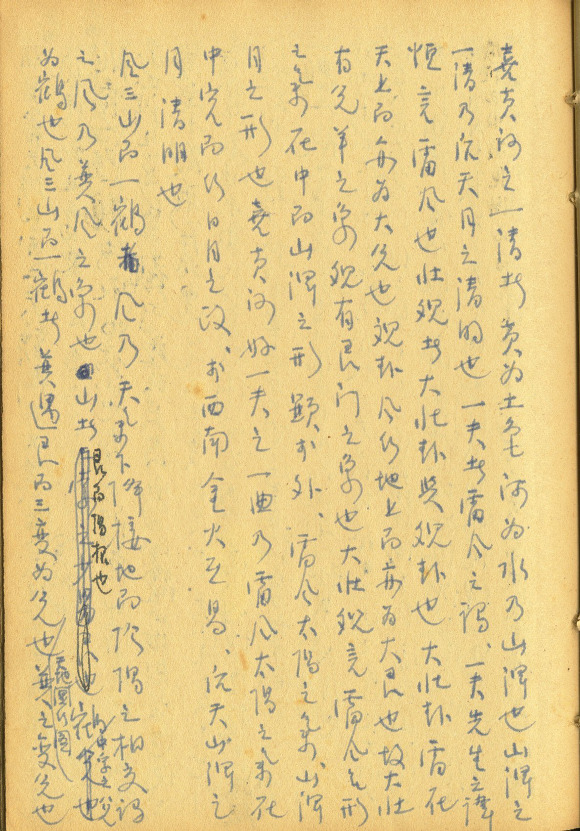 堯夫河之一清者 黄為土色 河為水 乃山澤也 山澤之
一清乃先天月之清明也 一夫者雷風之謂 一夫先生之諱
恒 言雷風也 壯觀者大壯卦與觀卦也 大壯卦雷在
天上而亦為大兌也 觀卦風行地上而亦為大艮也 故大壯
有兌羊之象 觀有艮門之象也 大壯觀言雷風之形
之氣在中而山澤之形顯於外、雷風太陽之氣、山澤
月之形也 堯夫河 一夫之一曲乃雷風太陽之氣在
中宮而行日月之政、於西南金火互易、先天山澤之
月清明也
風三山而一鶴 風乃天氣下降接地而陰陽之相交謂
之風 乃巽風之象也 山者 艮而陽根也
為鶴也 風三山而一鶴者 巽遇艮而三變為兌也 巽之變兌也